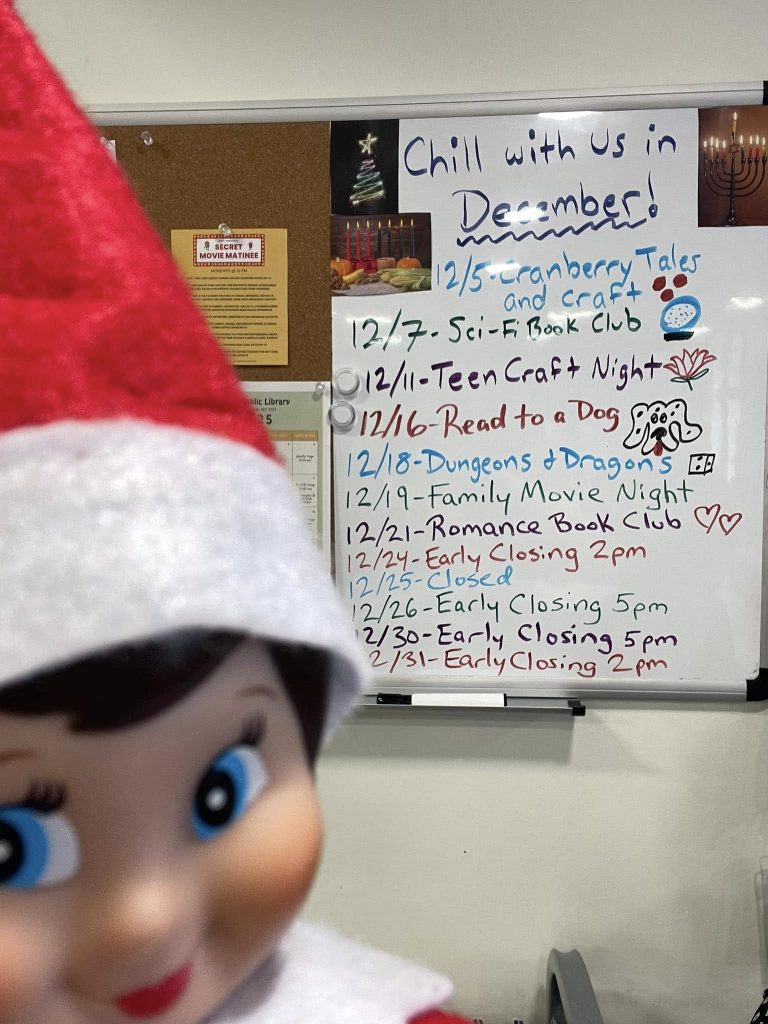 Chill with Us in
December!
12/5-Cranberry Tales
and craft
12/7-Sci-Fi Book Club
12/11-Teen Craft Night
12/16-Read to a Dog
12/18-Dungeons & Dragons
12/19-Family Movie Night
12/21-Romance Book Club
12/24-Early Closing 2pm
12/25-Closed
12/26-Early Closing 5pm
2/30-Early Closing 5pm
2/31-Early Closing 2pm
SECRET
MOVIE MATINEE
MONDAYS @ 12 PM
blic Library